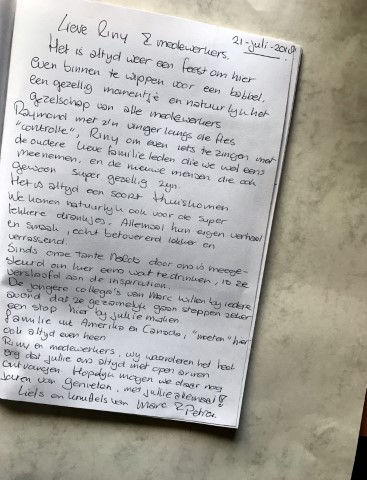 21-juli-2018
Lieve Riny & medewerkers,
Het is altyd weer een feest om hier
even binnen te wippen voor een babbel,
een gezellig momentje en natuurlyk het
gezelschap van alle medewerkers
Raymond met z'n vinger langs de fles
"controle", Riny om even iets te zingen met
de oudere lieve familie leden die we wel eens
meenemen, en de nieuwe mensen die ook
gewoon super gezellig zyn.
Het is altyd een soort thuiskomen
We komen natuurlyk ook voor de super
lekkere drankjes. Allemaal hun eigen verhaal
en smaak, echt betoverend lekker en
verrassend.
Sinds onze tante door ons is meege-
sleurd om hier eens wat te drinken, is ze
verslaafd aan de inspiration.
De jongere collega's van Marc willen by iedere
avond dat ze gezamelyk gaan stappen zeker
een stop hier by jullie maken.
Familie uit Amerika en Canada, "moeten" hier
ook altyd even heen
Riny en medewerkers, wy waarderen het heel
erg dat jullie ons altyd met open armen
ontvangen. Hopelyk mogen we daar nog
jaren van genieten, met jullie allemaal!
Liefs en knuffels van Marc & Petra.